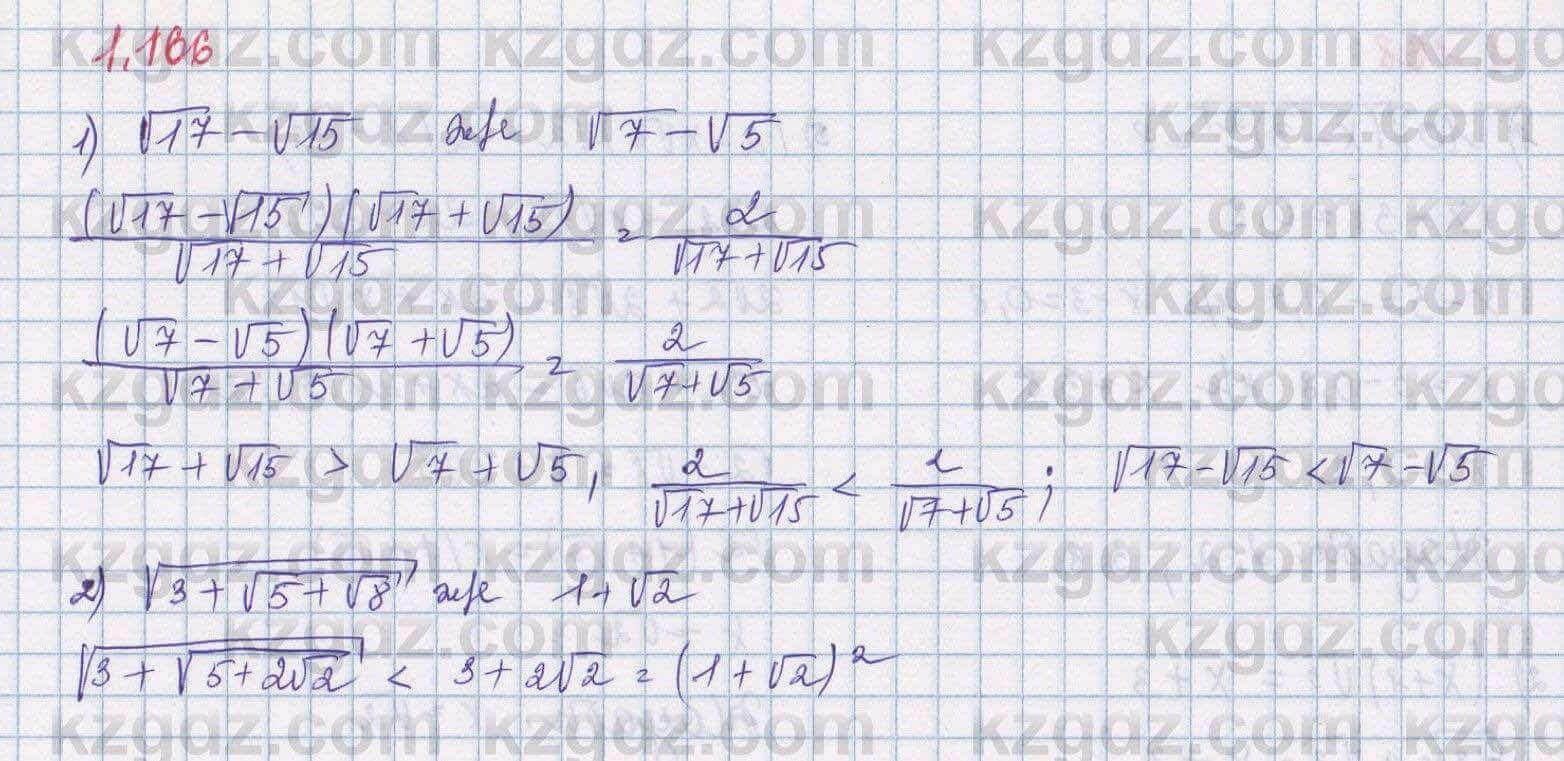 1.166
1) √17 − √15 және √7 − √5
((√17 − √15)(√17 + √15))/(√17 + √15) = 2/(√17 + √15)
((√7 − √5)(√7 + √5))/(√7 + √5) = 2/(√7 + √5)
√17 + √15 > √7 + √5, 2/(√17 + √15) < 2/(√7 + √5); √17 − √15 < √7 − √5
2) √(3 + √(5 + √8)) және 1 + √2
√(3 + √(5 + 2√2)) < 3 + 2√2 = (1 + √2)²
kzgdz.com